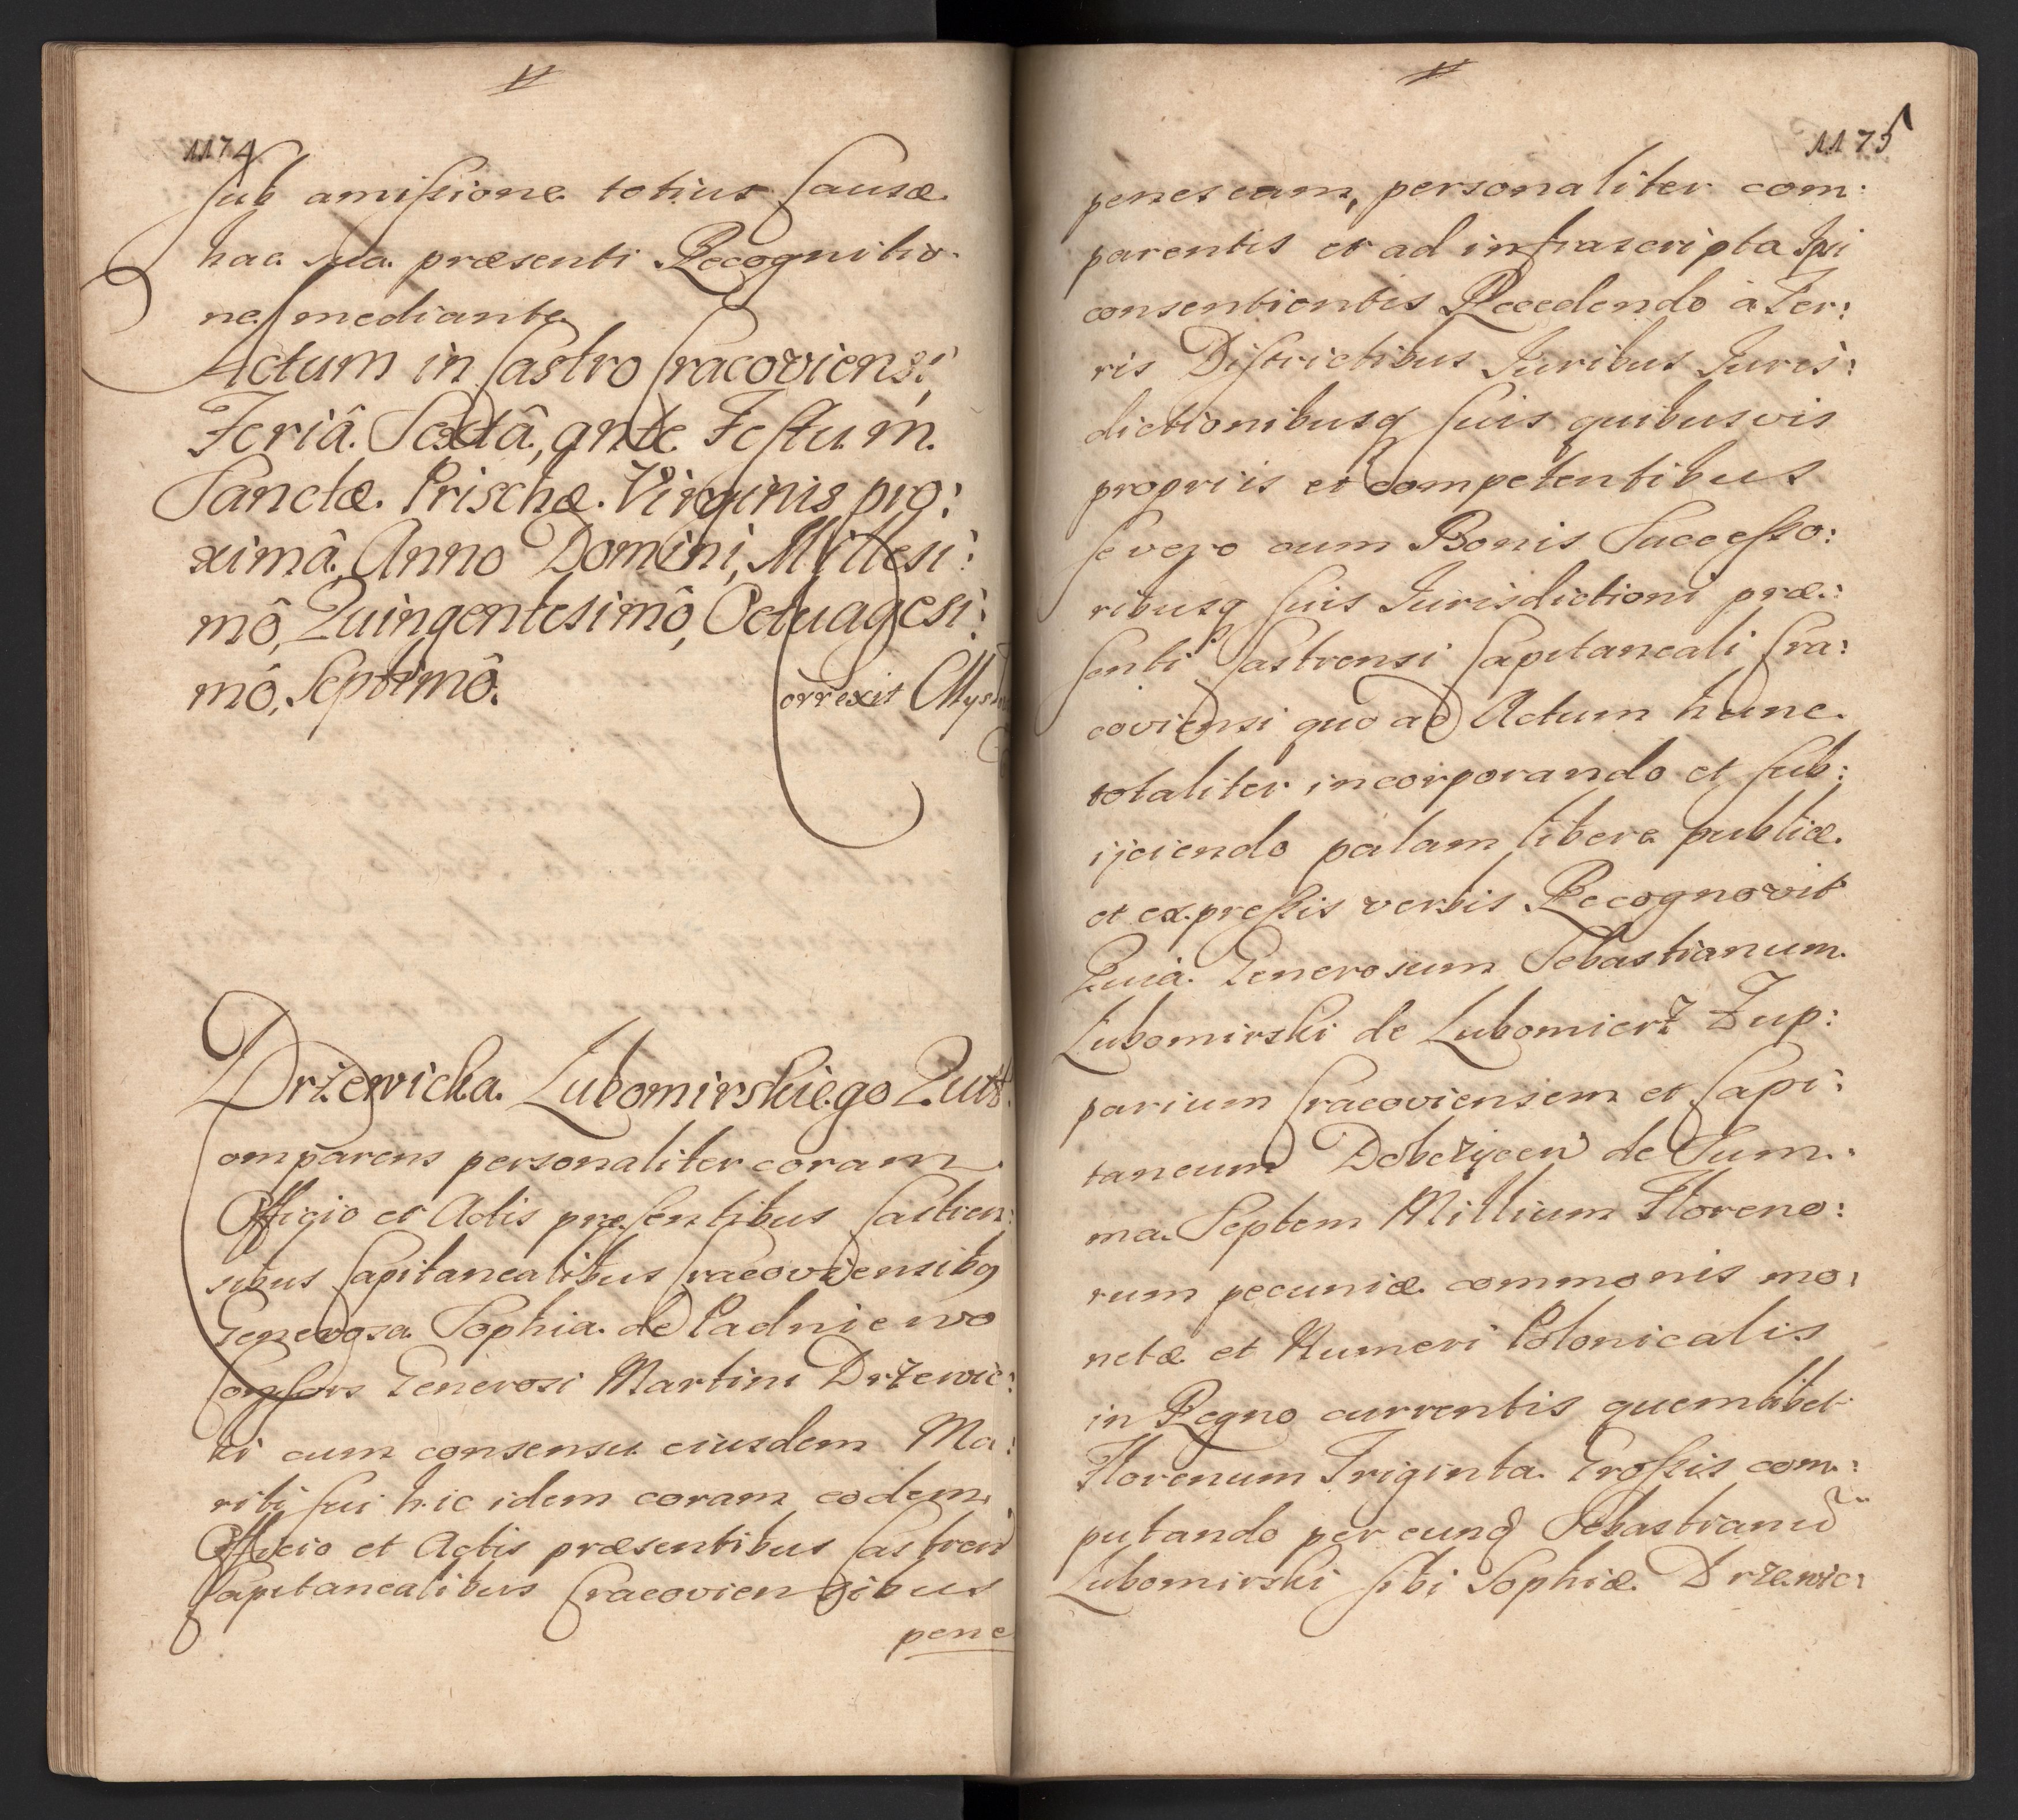 1174
sub amissione totius Causæ
hac sua præsenti Recognitio-
ne mediante
Actum in Castro Cracoviensi,
Feriâ Sextâ, ante Festum
Sanctæ Prischæ Virginis pro:
ximâ, Anno Domini, Millesi:
mô, Quingentesimô, Octuagesi:
mô, Septimô.
Correxit
Drżewicka Lubomirskiego Quit
Comparens personaliter coram
Officio et Actis præsentibus Castren:
sibus Capitanealibus Cracoviensibq
Generosa Sophia de Padniewo
Consors Generosi Martini Drżewic:
ki cum consensu eiusdem Ma:
riti sui hic idem coram eodem
Officio et Actis præsentibus Castren
Capitanealibus Cracoviensibus
pene
1175
penes eam, personaliter com:
parentis et ad infrascripta Ipsi
consentientis Recedendo à Ter:
ris Districtibus Iuribus Iuris:
dictionibusq suis quibusvis
propriis et competentibus
se vero cum Bonis Successo:
ribusq suis Iurisdictioni præ:
senti Castrensi Capitaneali Cra:
coviensi quo ad Actum hunc
totaliter incorporando et sub:
ijciendo palam libere publice
et expressis verbis Recognovit
Quia Generosum Sebastianum
Lubomirski de Lubomierż Zup:
parium Cracoviensem et Capi:
taneum Dobczycen de Sum:
ma Septem Millium Floreno:
rum pecuniæ commonis mo:
netæ et Numeri Polonicalis
in Regno currentis quemlibet
Florenum Triginta Grossis com:
putando per eund Sebastianū
Lubomirski sibi Sophiæ Drzewic: